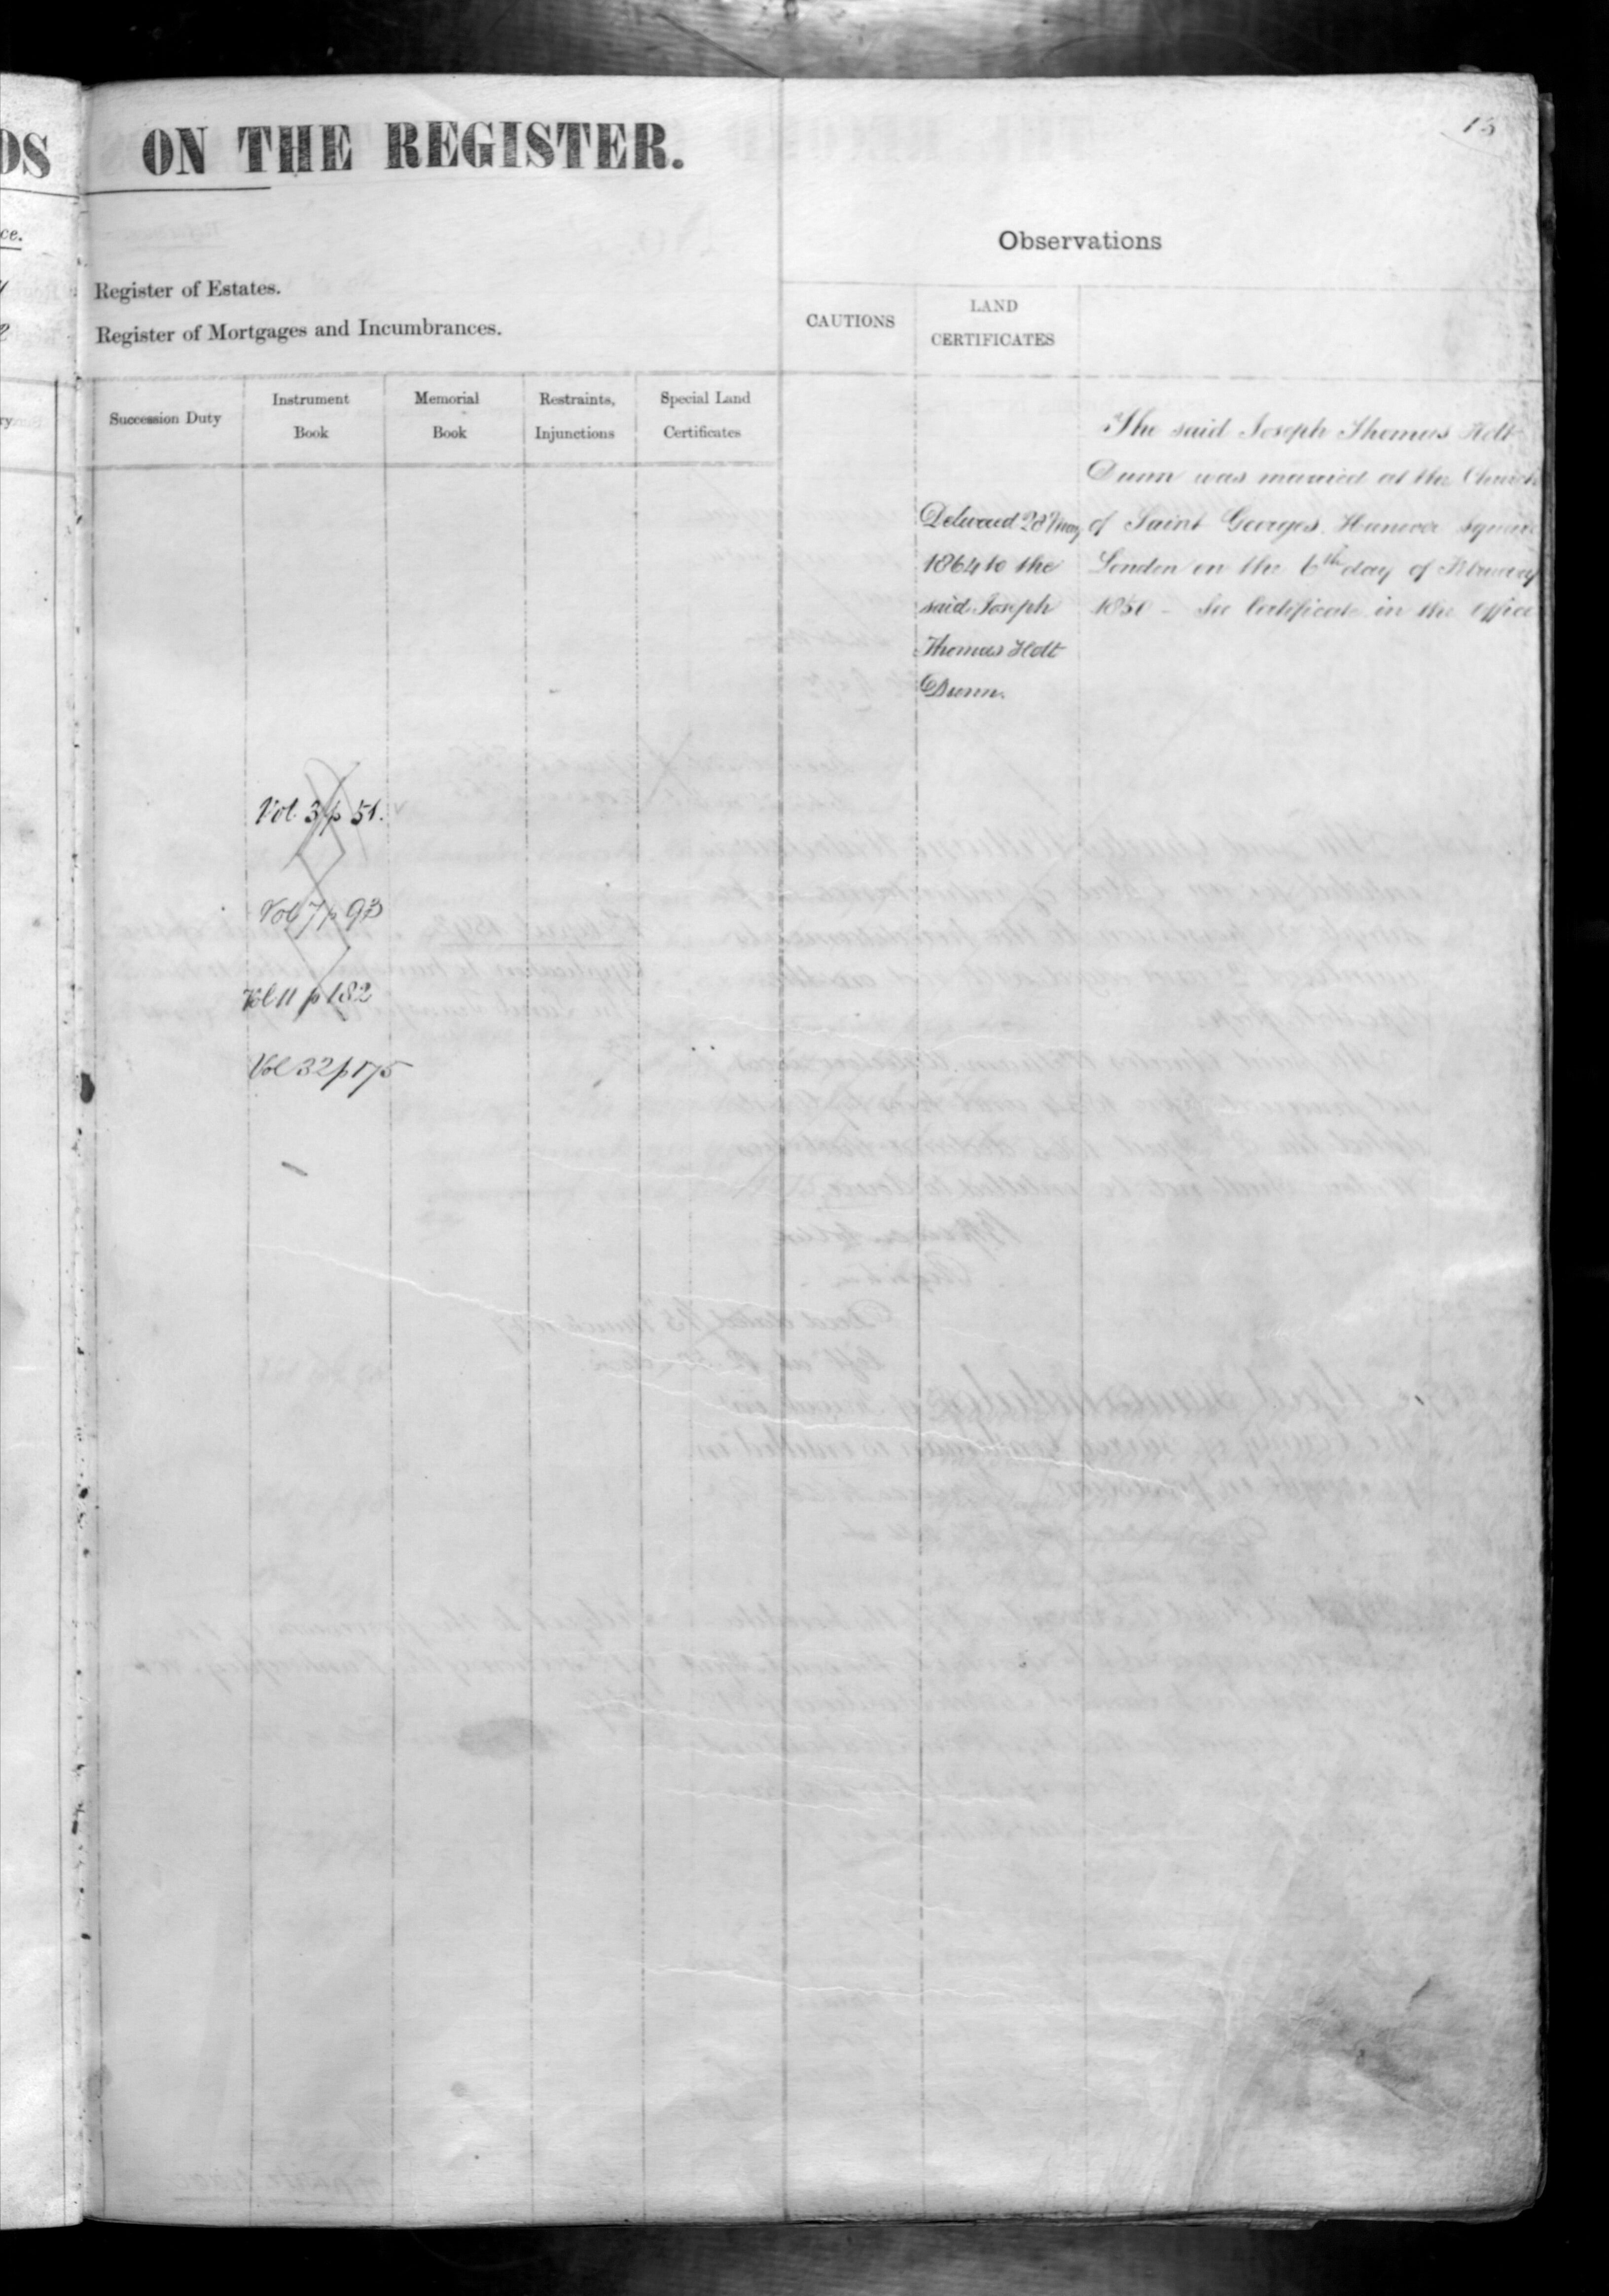 DS ON THE REGISTER.
13
ce.
Observations
Register of Estates.
Register of Mortgages and Incumbrances.
CAUTIONS
LAND
CERTIFICATES
ry
Succession Duty
Instrument
Book
Memorial
Book
Restraints,
Injunctions
Special Land
Certificates
The said Joseph Thomas Holt
Dunn was married at the Church
of Saint Georges Hanover Square
London on the 6th day of February
1850 - See Certificate in the Office
Delivered 28 May
1864 to the
said Joseph
Thomas Holt
Dunn.
Vol. 3 p 51.
Vol 7 p 93
Vol 11 p 182
Vol 32 p 175